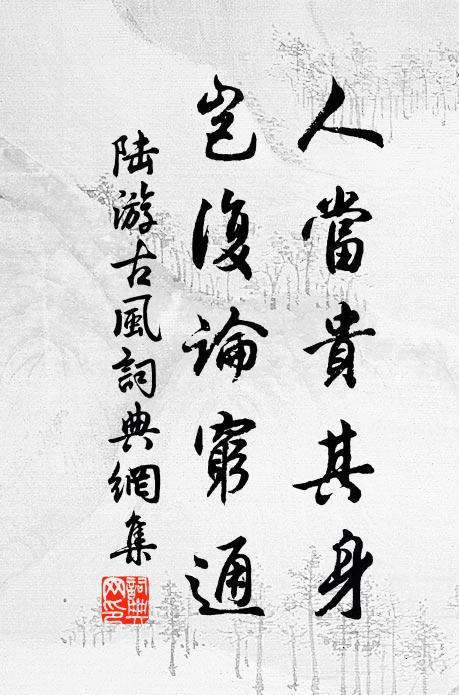 人當貴其身
豈復論窮通
陸游古風詞典網集
詞典
网印